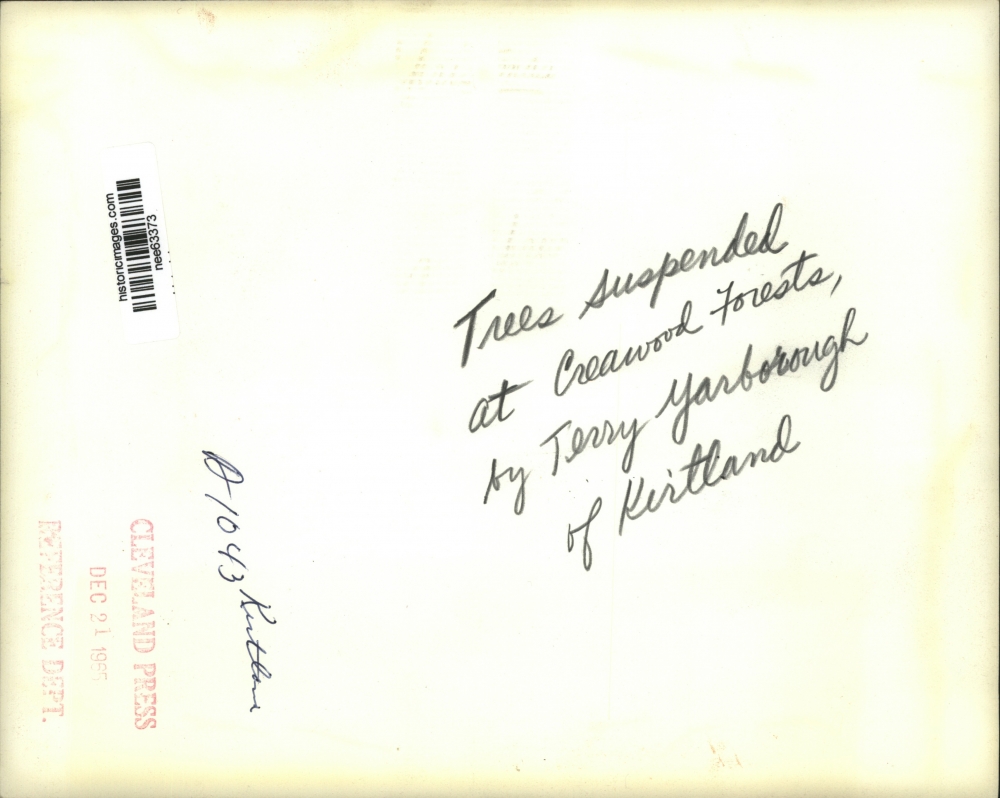 Trees suspended
at Creawood Forests,
by Terry Yarborough
of Kirtland
historicimages.com
nee63373
A-1043 Kirtland
CLEVELAND PRESS
DEC 21
REFERENCE DEPT.